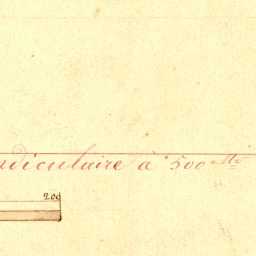 ndiculaire à 500 Mtr
200